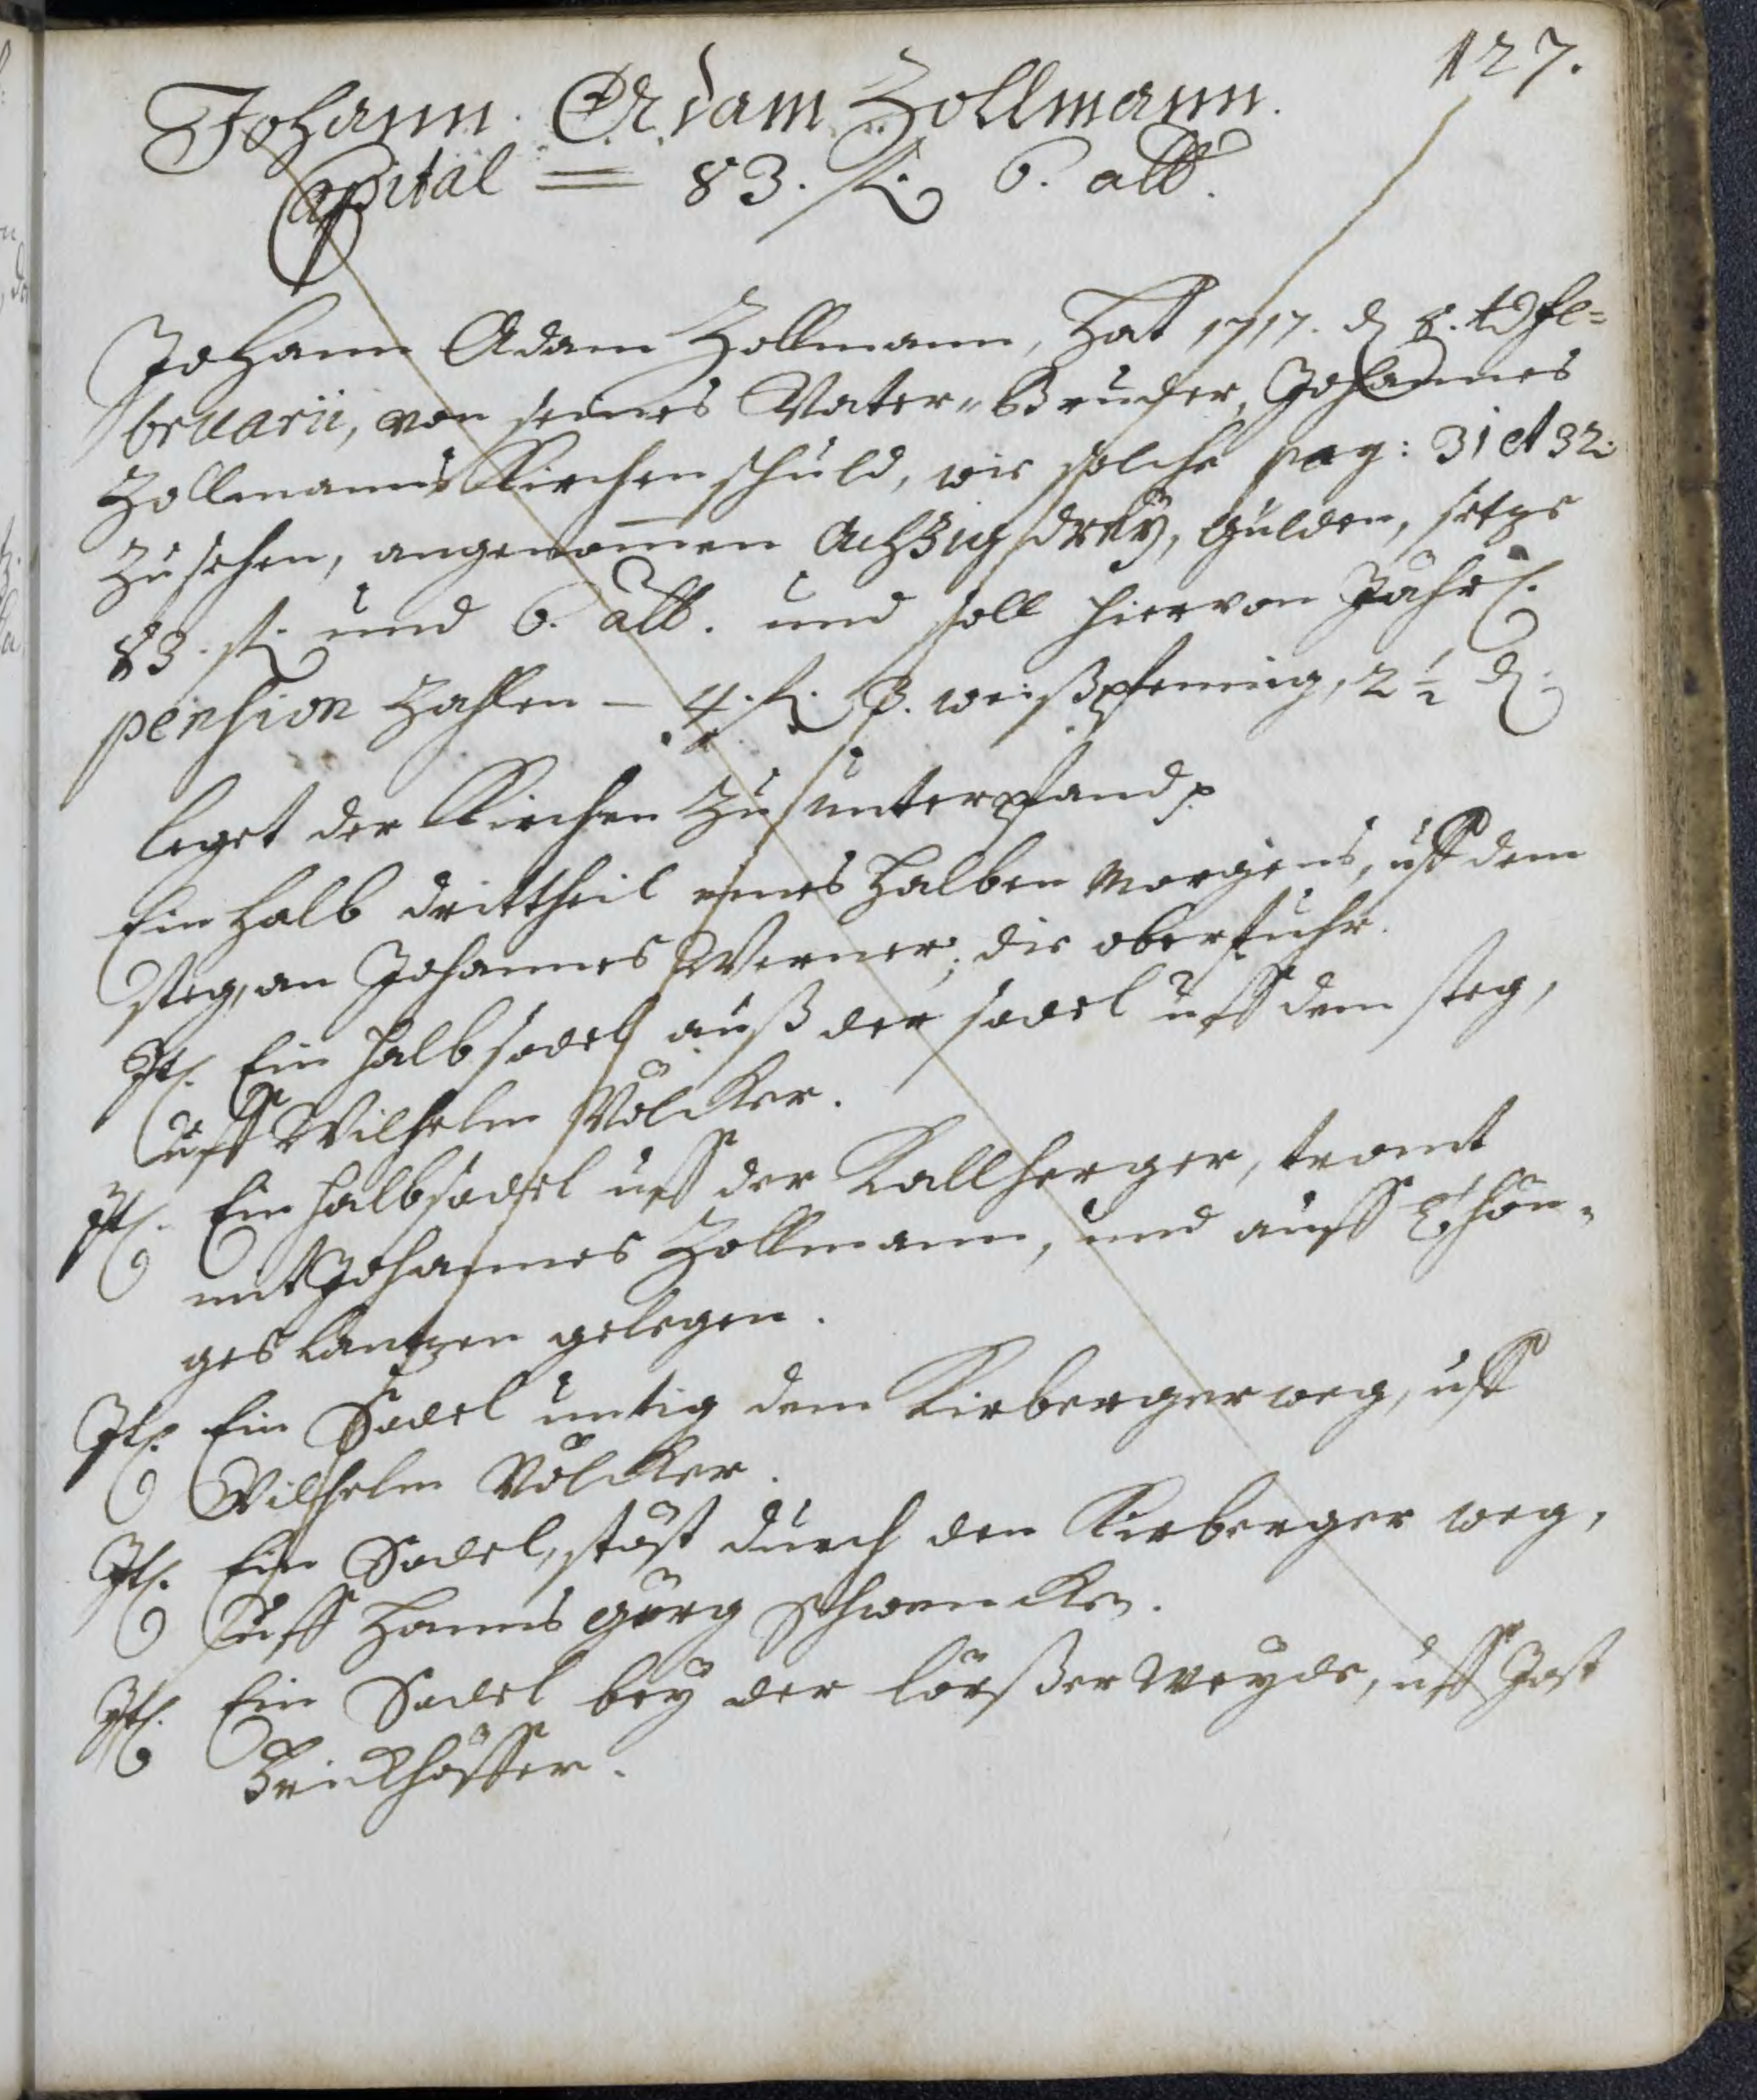 127.
Johann Adam Zollmann.
Capital = 83. fl. 6. alb.
Johann Adam Zollmann, hat 1717. d. 8. t. Fe=
bruarii, von seines Vater=Bruder, Johannes
Zollmanns Kirchenschuld, wie solche pag: 31 et 32.
zu sehen, angenommen Achzig drey, gulden, setze
83. fl. und 6. alb. und soll hiervon Jährl.
pension zahlen – 4. fl. 3. weißpfennig, 2 1/2 d.
leget der Kirchen zu unterpfand
Ein halb drittheil eines halben Morgens, uff dem
steg, an Johannes Werner, die oberfuhr.
It. Ein halb sadel auß der sadel uff dem steg,
uff Wilhelm Völcker.
It. Ein halb sadel uff der Kallherger, tramt
mit Johannes Zollmann, und auff Thön=
ges Lantzen gelegen.
It. Ein Sadel untig dem Kirberger weg, uff
Wilhelm Völcker.
It. Ein Sadel, stöst durch den Kirberger weg,
uff Hanns Görg Schwencken.
It. Ein Sadel bey der lörßer Weyde, uff Jost
Brickhöffer.